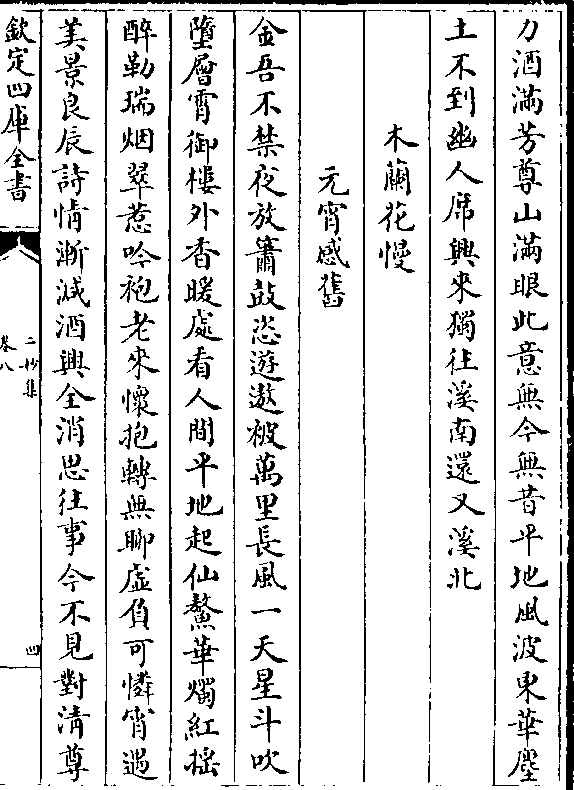 力酒滿芳尊山滿眼此意無今無昔平地風波東華塵
土不到幽人席興來獨往溪南還又溪北
木蘭花慢
元宵感舊
金吾不禁夜放簫鼓恣遊遨被萬里長風一天星斗吹
墮層霄御樓外香暖處看人間平地起仙鰲華燭紅搖
醉勒瑞烟翠惹吟袍老來懷抱轉無聊虛負可憐宵遇
美景良辰詩情漸減酒興全消思往事今不見對清尊
欽定四庫全書
二妙集
卷八
四